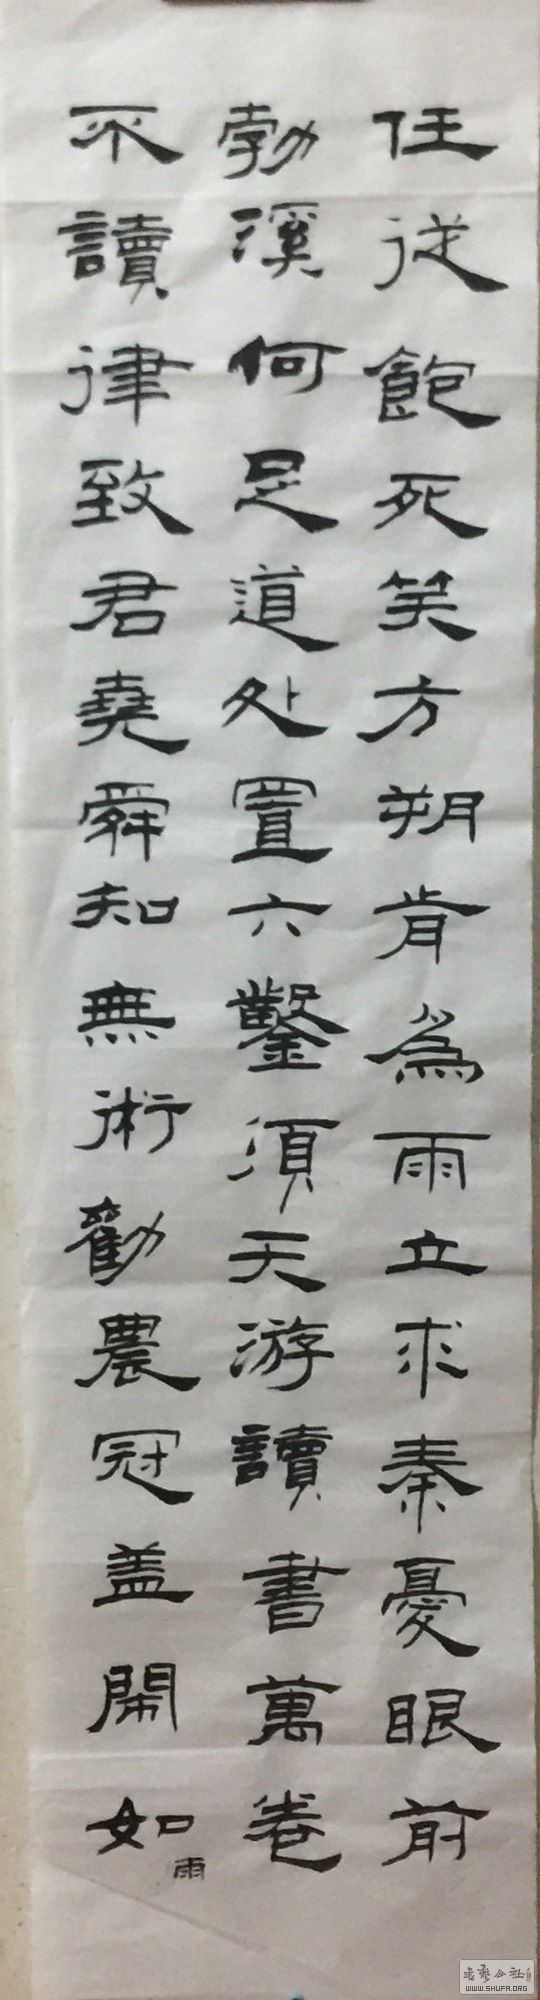 任從飽死笑方朔肯為雨立求秦憂眼前
勃溪何足道处置六鑿須天游讀書萬卷
不讀律致君堯舜知無術勸農冠盖鬧如
雨
书艺公社
WWW.SHUFA.ORG